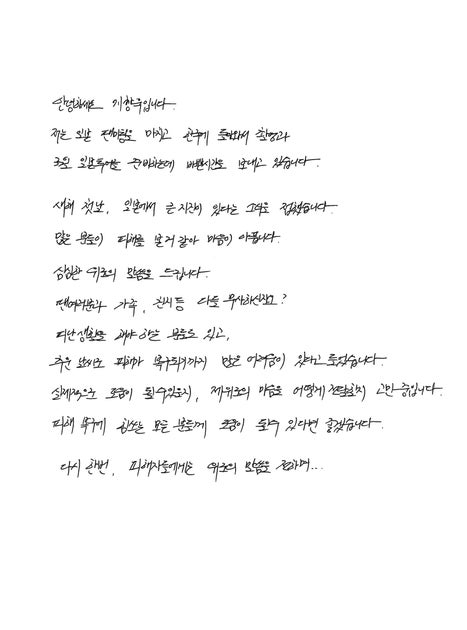 안녕하세요 지창욱입니다.
저는 일본 팬미팅을 마치고 한국에 돌아와서 촬영과
3월 일본투어를 준비하는데 바쁜시간을 보내고 있습니다.
새해 첫날, 일본에서 큰 지진이 있다는 소식을 접했습니다.
많은 분들이 피해를 본거 같아 마음이 아픕니다.
심심한 위로의 말씀을 드립니다.
팬여러분과 가족, 친지등 다들 무사하신지요?
피난생활을 해야 하는 분들도 있고,
추운 날씨에 피해가 복구되기까지 많은 어려움이 있다고 들었습니다.
실제적으로 도움이 될수있을지, 제 위로의 마음을 어떻게 전달할지 고민 중입니다.
피해 복구에 힘쓰는 모든 분들께 도움이 될수 있다면 좋겠습니다.
다시 한번, 피해자들에게는 위로의 말씀을 전하며...